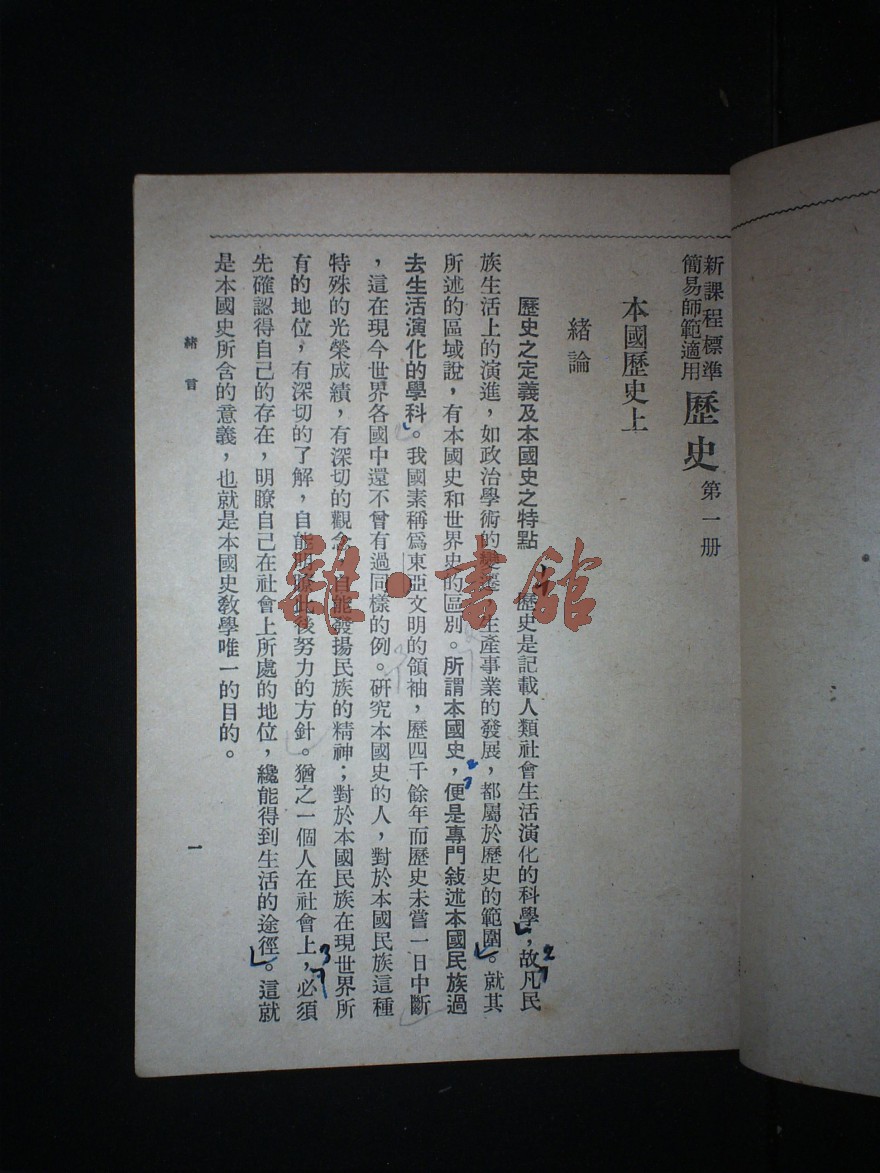 新課程標準
簡易師範適用
歷史 第一册
本國歷史上
緒論
歷史之定義及本國史之特點 歷史是記載人類社會生活演化的科學，故凡民
族生活上的演進，如政治學術的變遷，生產事業的發展，都屬於歷史的範圍。就其
所述的區域說，有本國史和世界史的區別。所謂本國史，便是專門敍述本國民族過
去生活演化的學科。我國素稱爲東亞文明的領袖，歷四千餘年而歷史未嘗一日中斷
，這在現今世界各國中還不曾有過同樣的例。研究本國史的人，對於本國民族這種
特殊的光榮成績，有深切的觀念，自能發揚民族的精神；對於本國民族在現世界所
有的地位，有深切的了解，自能明瞭此後努力的方針。猶之一個人在社會上，必須
先確認得自己的存在，明瞭自己在社會上所處的地位，纔能得到生活的途徑。這就
是本國史所含的意義，也就是本國史敎學唯一的目的。
緒言
一
雜·書館